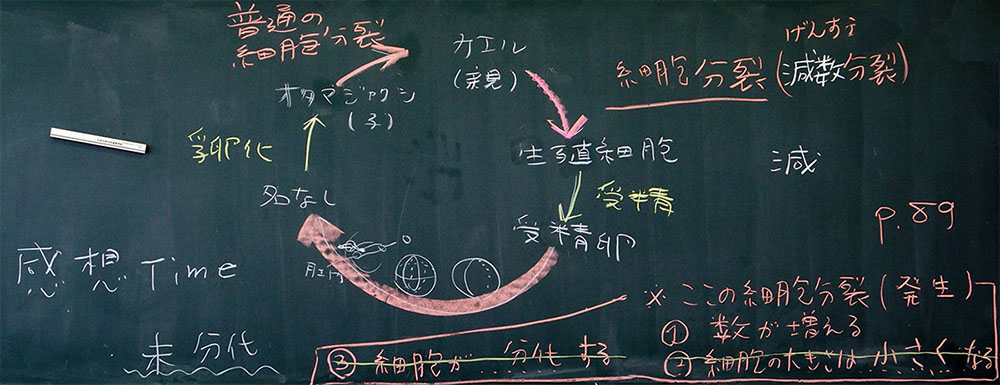 普通の
細胞分裂
カエル
(親)
げんすう
細胞分裂(減数分裂)
オタマジャクシ
(子)
孵化
生殖細胞
減
受精
名なし
受精卵
P.89
肛門
感想 Time
※ここの細胞分裂(発生)
① 数が増える
② 細胞の大きさは小さくなる
③ 細胞が分化する
未分化